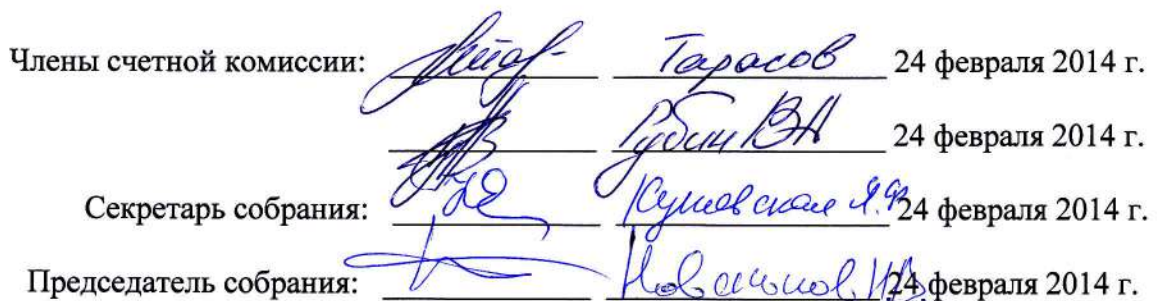 Члены счетной комиссии: Тарасов 24 февраля 2014 г.
Рубин ВН 24 февраля 2014 г.
Секретарь собрания: 24 февраля 2014 г.
Председатель собрания: 24 февраля 2014 г.